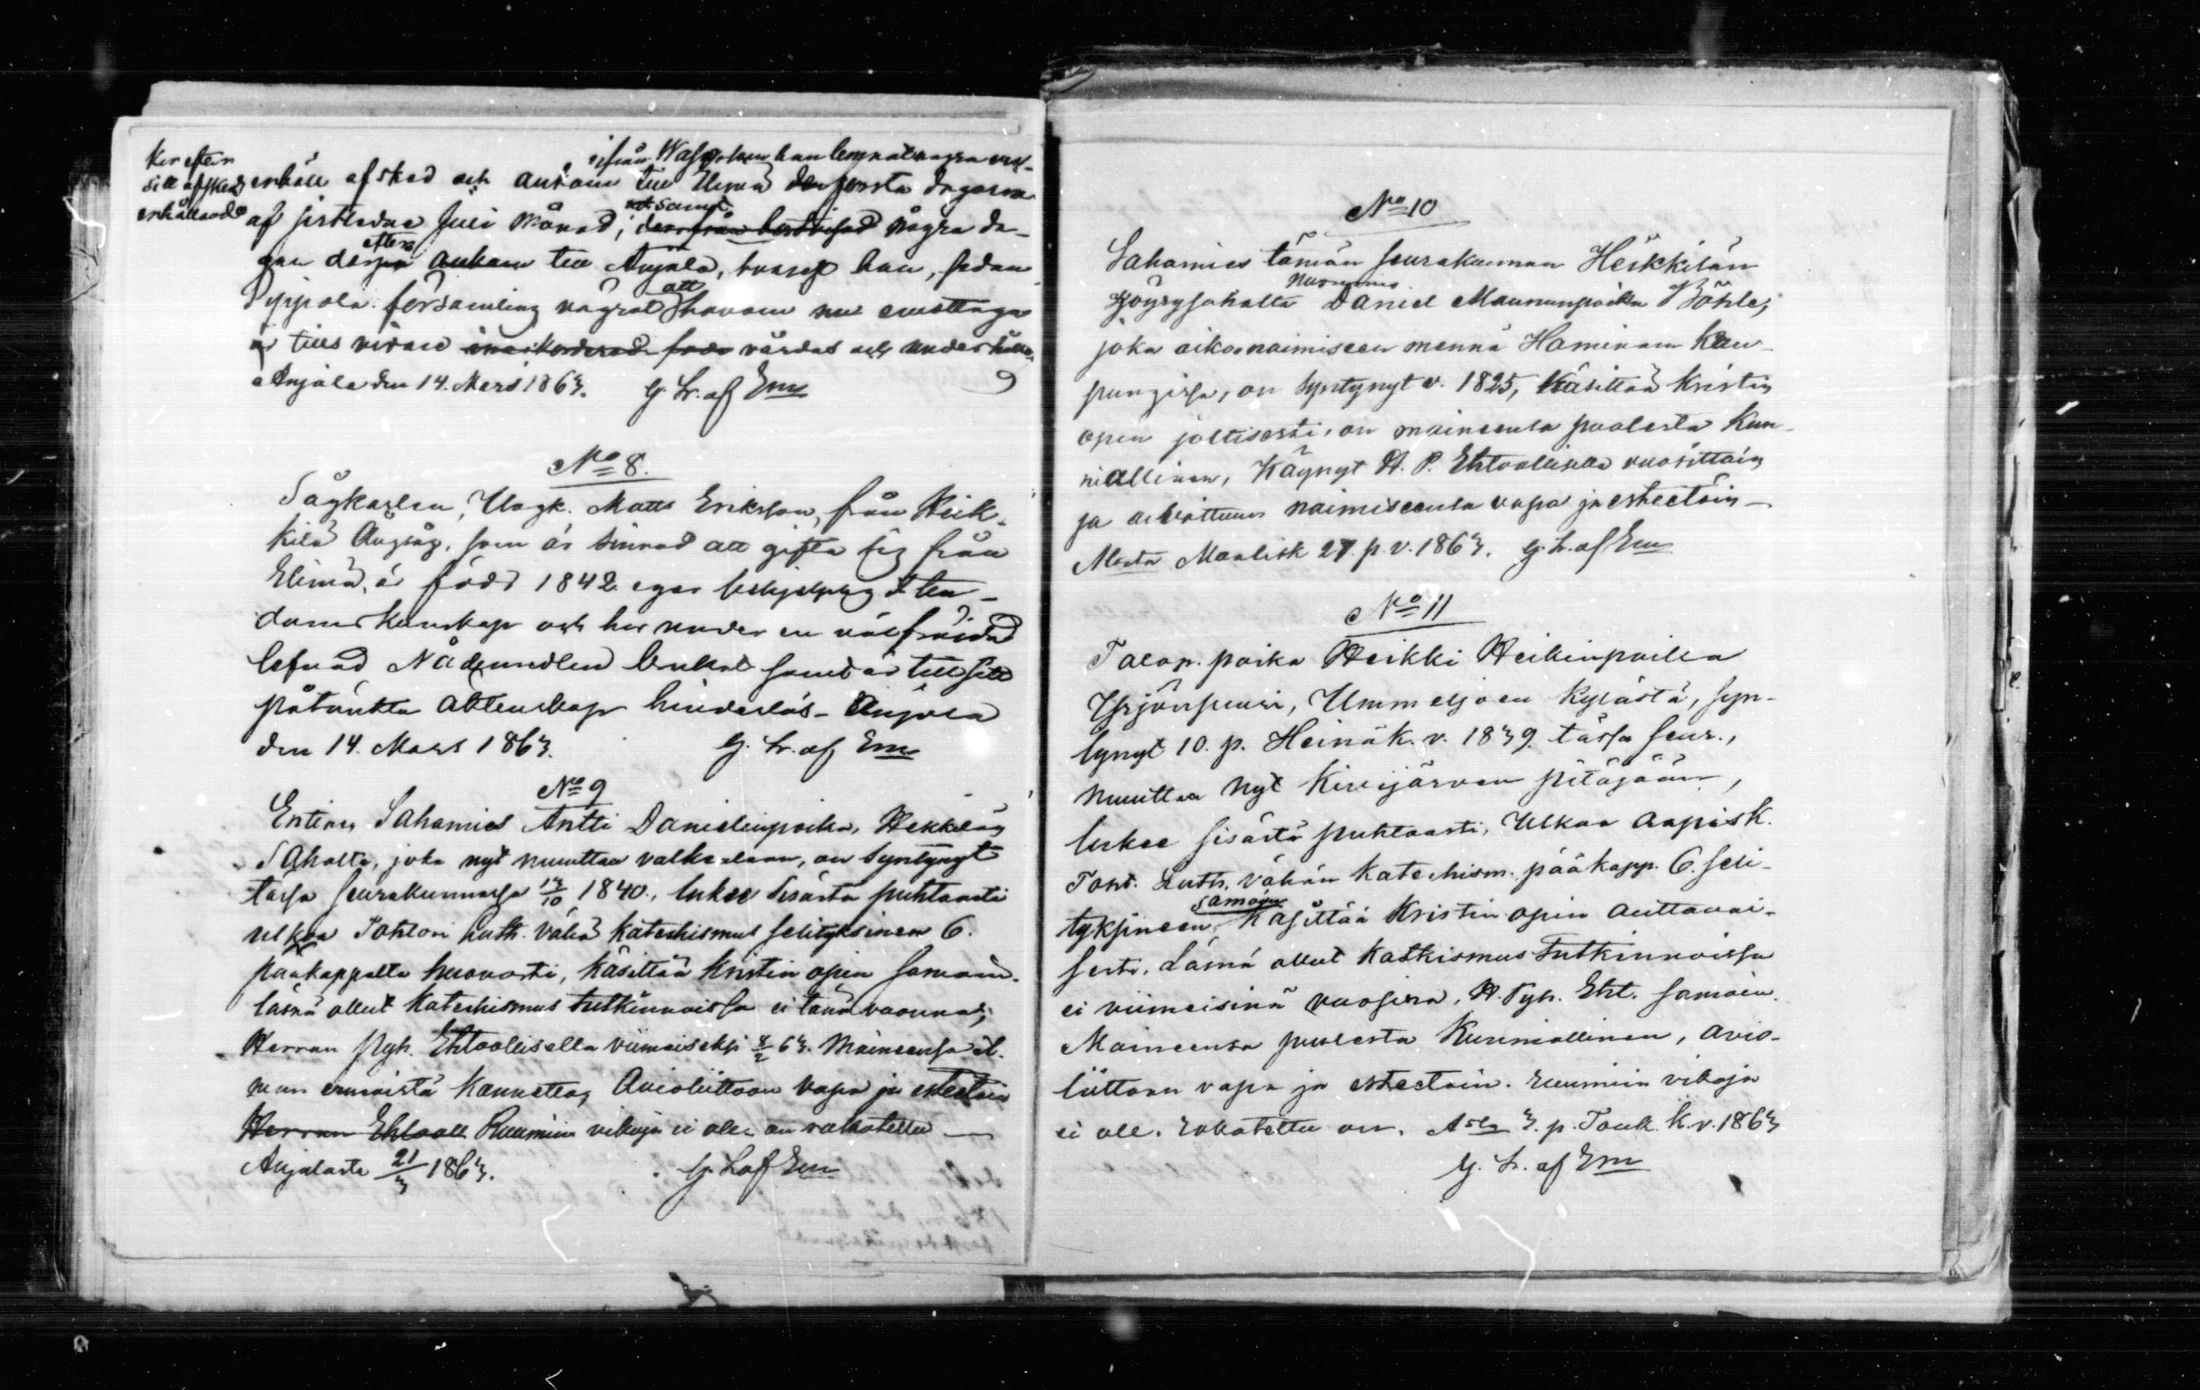 ker efter
sitt afsked
erhållande
ifrån
han
erhöll afsked och ankom till Elimä den första dagarna
af sistledne Juli Månad; samt derifrån några da-
gar derefter ankom till Anjala, hvarest han, sedan
Sippola församling vägrat att honom mottaga
är tills vidare vårdas och underhålles
Anjala den 14. Mars 1863. G. Lr. af Em
No 8.
Sågkarlen, Ungk. Matts Eriksson, från Heik-
kilä Ångsåg, som är sinnad att gifta sig från
Elimä, är född 1842 eger behjelplig Kristen-
domskunskap och har under en välfräjdad
lefnad Nådemedlen brukat samt är till sitt
påtänkta äktenskap hinderlös - Anjala
den 14. Mars 1863. G. Lr. af Em
No 9
Entinen Sahamies Antti Danielinpoika, Hekkilän
Sahalta, joka nyt muuttaa Valkealaan, on syntynyt
tässä seurakunnassa 13/10 1840., lukee sisästä puhtaasti
ulkoa Tohtori Luth. vähä katechismus selityksineen 6.
pääkappaletta huonosti, käsittää Kristin opin samoin.
läsnä ollut Katechismus tutkinnoissa ei tänä vuonna;
Herran Pyh. Ehtoollisella viimeiseksi 8/2 63. Maineensa il-
man Kannetta, Avioliittoon vapa ja esteetöin
Herran Ehtooll Ruumiin vikoja ei ole on rokotettu —
Anjalasta 21/3 1863. G. L af Em
No 10
Sahamies tämän seurakunnan Heikkilän
Nuormies
höyrysahalta Daniel Maununpoika Böhle;
joka aikoo naimiseen mennä Haminan kau-
pungissa, on syntynyt v. 1825, käsittää Kristin
opin joltisesti, on maineensa puolesta kun-
niallinen, Käynyt H. P. Ehtoollisella vuosittain
ja aivottuun naimiseensa vapa ja esteetöin —
Maalisk 27. p. v. 1863. G. L. af Em
No 11
Talop. poika Heikki Heikinpoika
Yrjönpuusi, Ummeljoen kylästä, syn-
tynyt 10. p. Heinäk. v. 1839. tässä seur.,
muuttaa nyt Kivijärven pitäjään,
lukee sisästä puhtaasti, Ulkoa aapisk.
Toht. Luth. vähän Katechism. pääkapp. 6. seli-
tyksineen samoin Käsittää Kristin opin auttavai-
sesti. Läsnä ollut Katkismus Tutkinnoissa
ei viimeisinä vuosina, H. Pyh. Eht. samoin.
Maineensa puolesta Kunniallinen, avio-
liittoon vapa ja esteetöin. ruumiin vikoja
ei ole. rokotettu on. 3. p. Touk. K. v. 1863
G. Lr. af Em